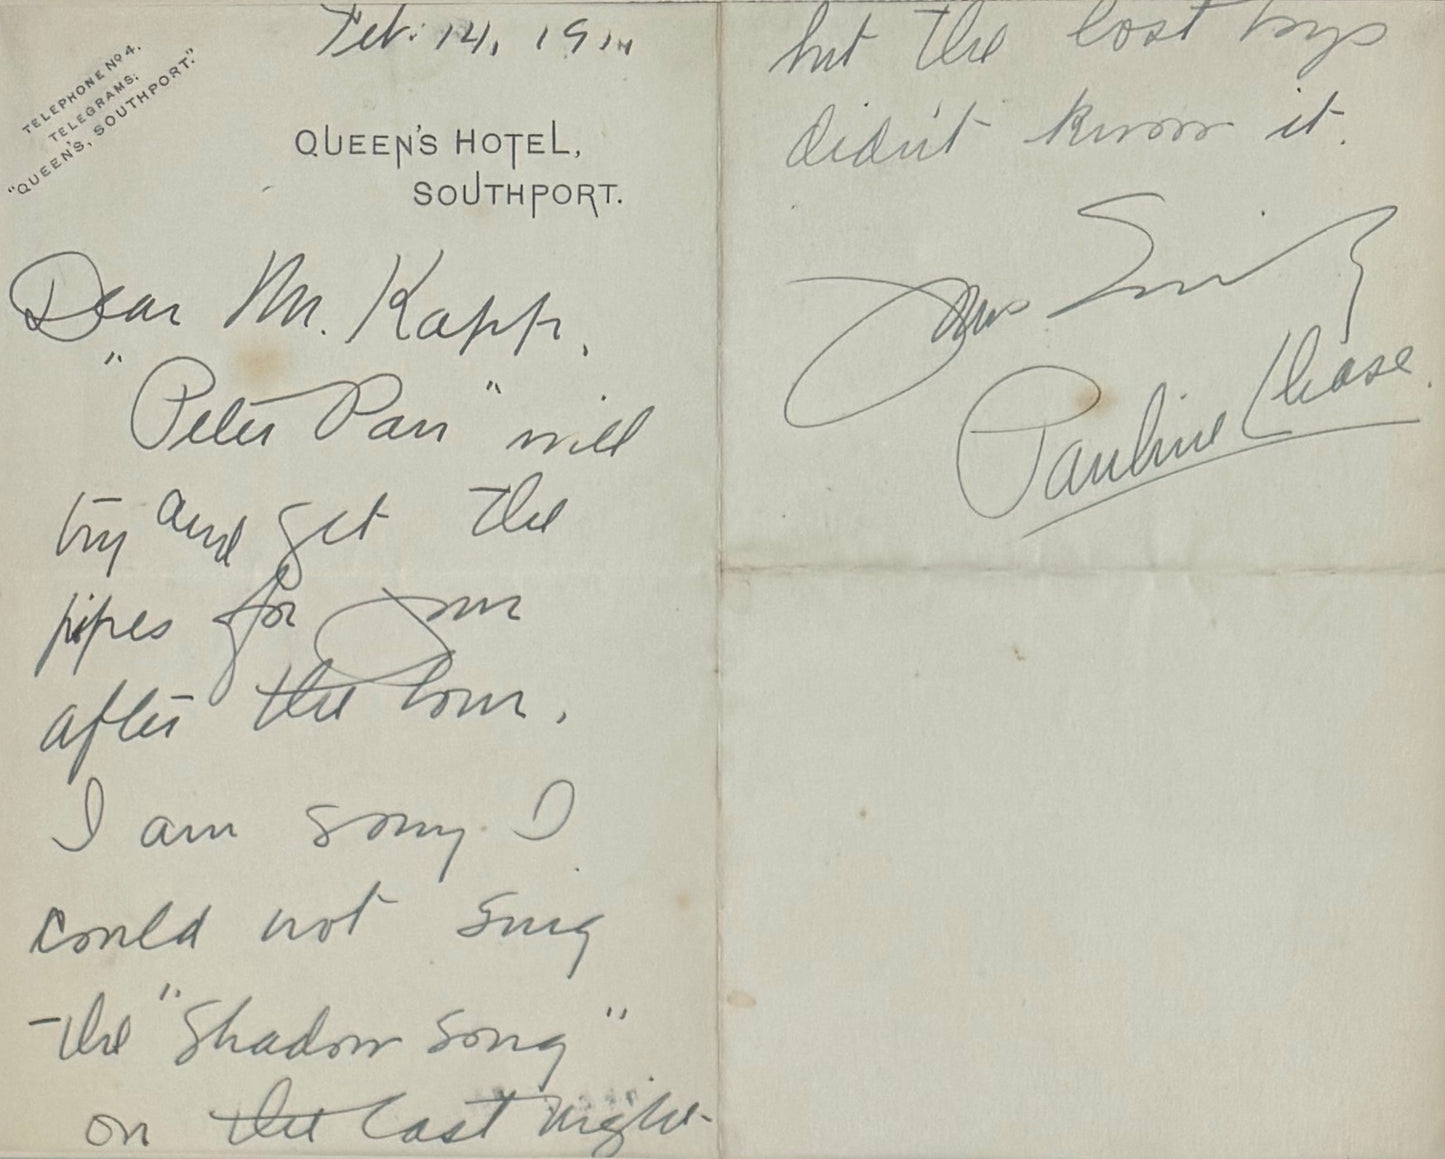 Feb. 14, 1911
TELEPHONE Nº 4.
TELEGRAMS:
"QUEEN'S, SOUTHPORT."
QUEEN'S HOTEL,
SOUTHPORT.
Dear Mr. Kapp,
"Peter Pan" will
try and get the
pipes for you
after the tour.
I am sorry I
could not sing
the "Shadow song"
on the last night
but the lost boys
didn't know it.
Yours Sincerely
Pauline Chase.